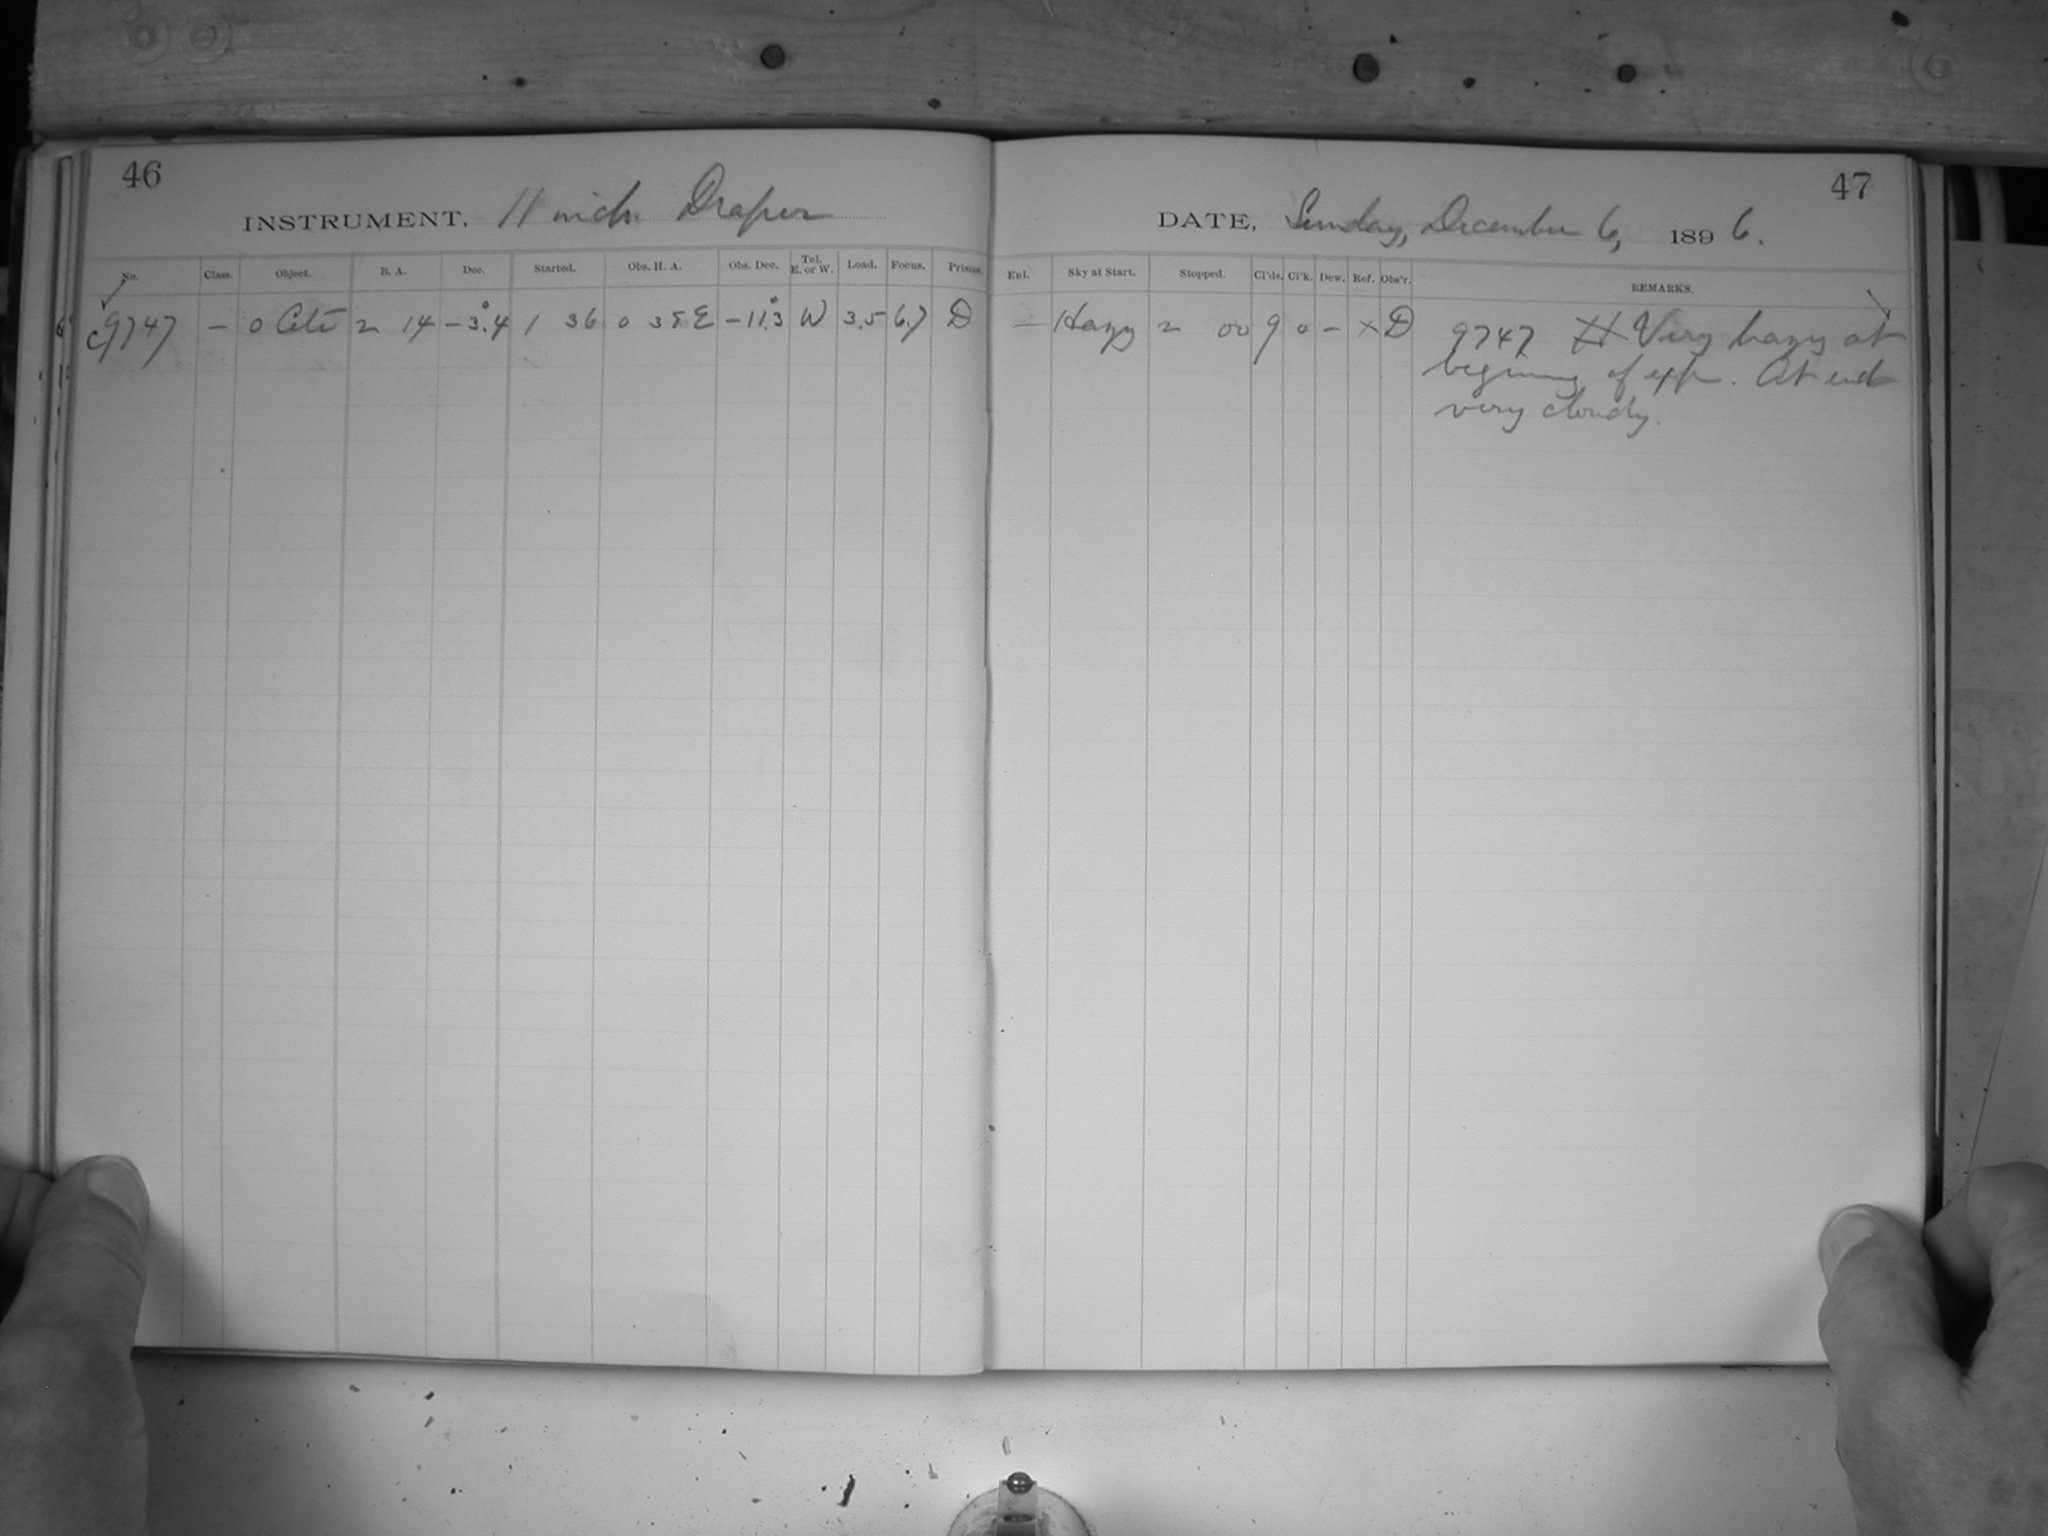 46
INSTRUMENT, 11 inch Draper
No. Class. Object. R. A. Dec. Started. Obs. H. A. Obs. Dec. Tel. E. or W. Load. Focus. Prisms.
c9747 – o Ceti 2 14 –3°.4 1 36 0 38 E –11°.3 W 3.5 6.7 D
47
DATE, Sunday, December 6, 1896.
Enl. Sky at Start. Stopped. Cl'ds. Cl'k. Dew. Ref. Obs'r. REMARKS.
– Hazy 2 00 9 0 – × D 9747 Very hazy at
beginning of exp. At end
very cloudy.